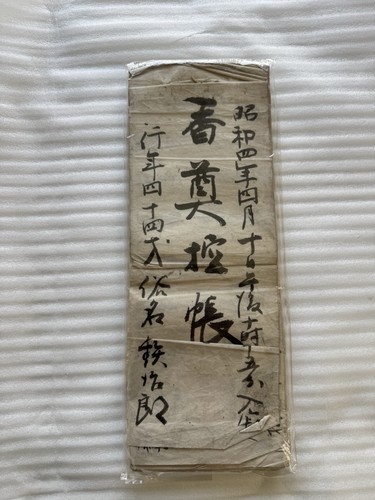 昭和四年四月十日午後十時五分入
香奠控帳
行年四十四才 俗名 鉄治郎